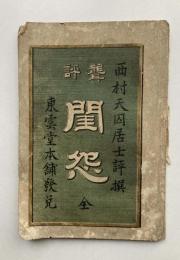 西村天囚居士評撰
叢評
閨怨
全
東雲堂本舗發兌